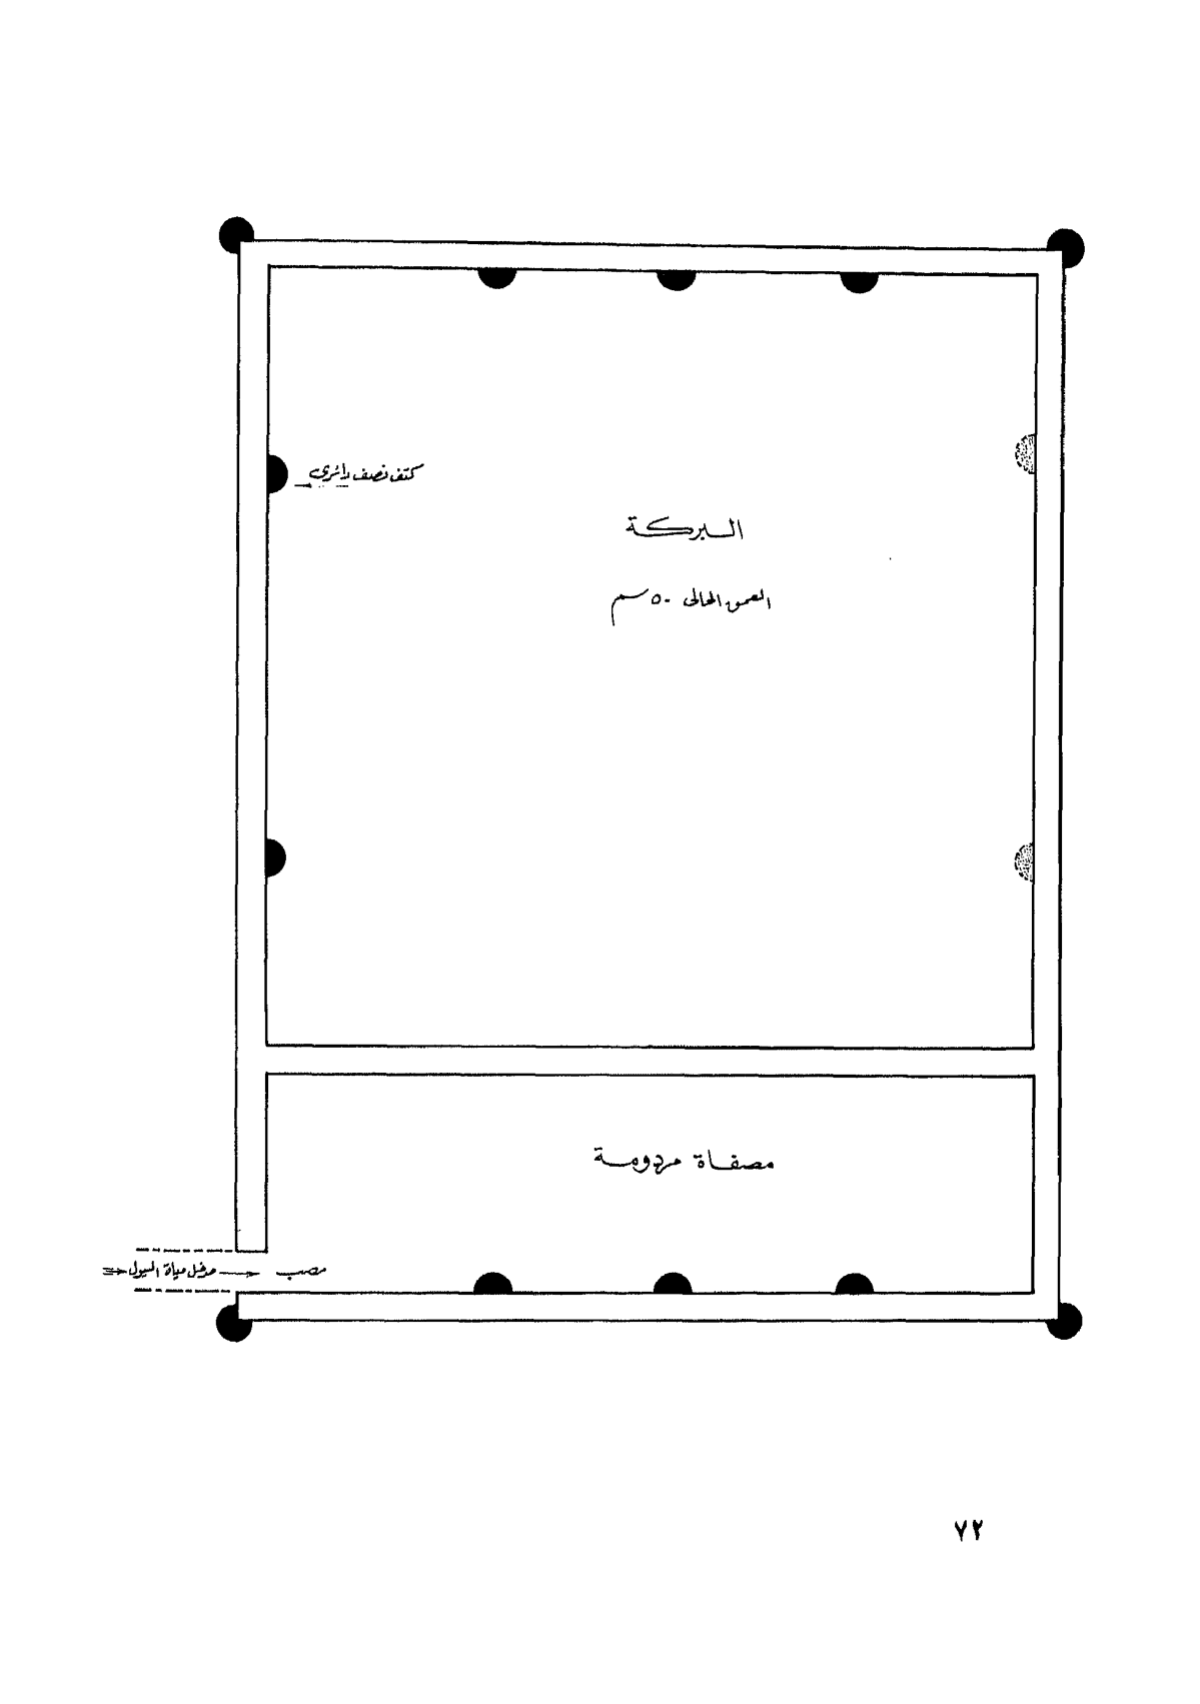 كتف نصف دائري
البركة
العمق الحالى ٥٠ سم
مصفاة مردومة
مصب
مدخل مياة السيول
٧٢